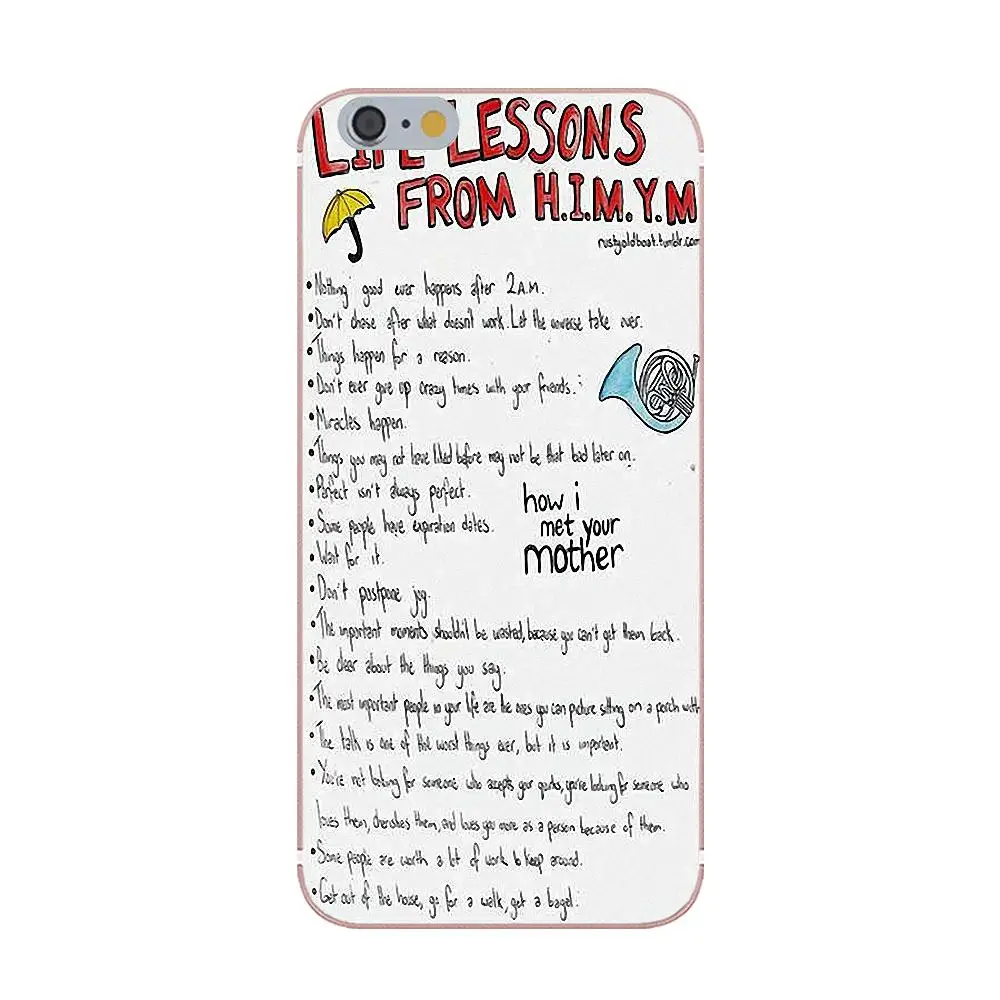 LIFE LESSONS
FROM H.I.M.Y.M
rustyoldboat.tumblr.com
• Nothing good ever happens after 2 A.M.
• Don't chase after what doesn't work. Let the universe take over.
• Things happen for a reason.
• Don't ever give up crazy times with your friends.
• Miracles happen.
• Things you may not have liked before may not be that bad later on.
• Perfect isn't always perfect.
• Some people have expiration dates.
how i
met your
mother
• Wait for it.
• Don't postpone joy.
• The important moments shouldn't be wasted, because you can't get them back.
• Be clear about the things you say.
• The most important people in your life are the ones you can picture sitting on a porch with
• The talk is one of the worst things ever, but it is important.
• You're not looking for someone who accepts your quirks, you're looking for someone who
loves them, cherishes them, and loves you more as a person because of them.
• Some people are worth a lot of work to keep around.
• Get out of the house, go for a walk, get a bagel.